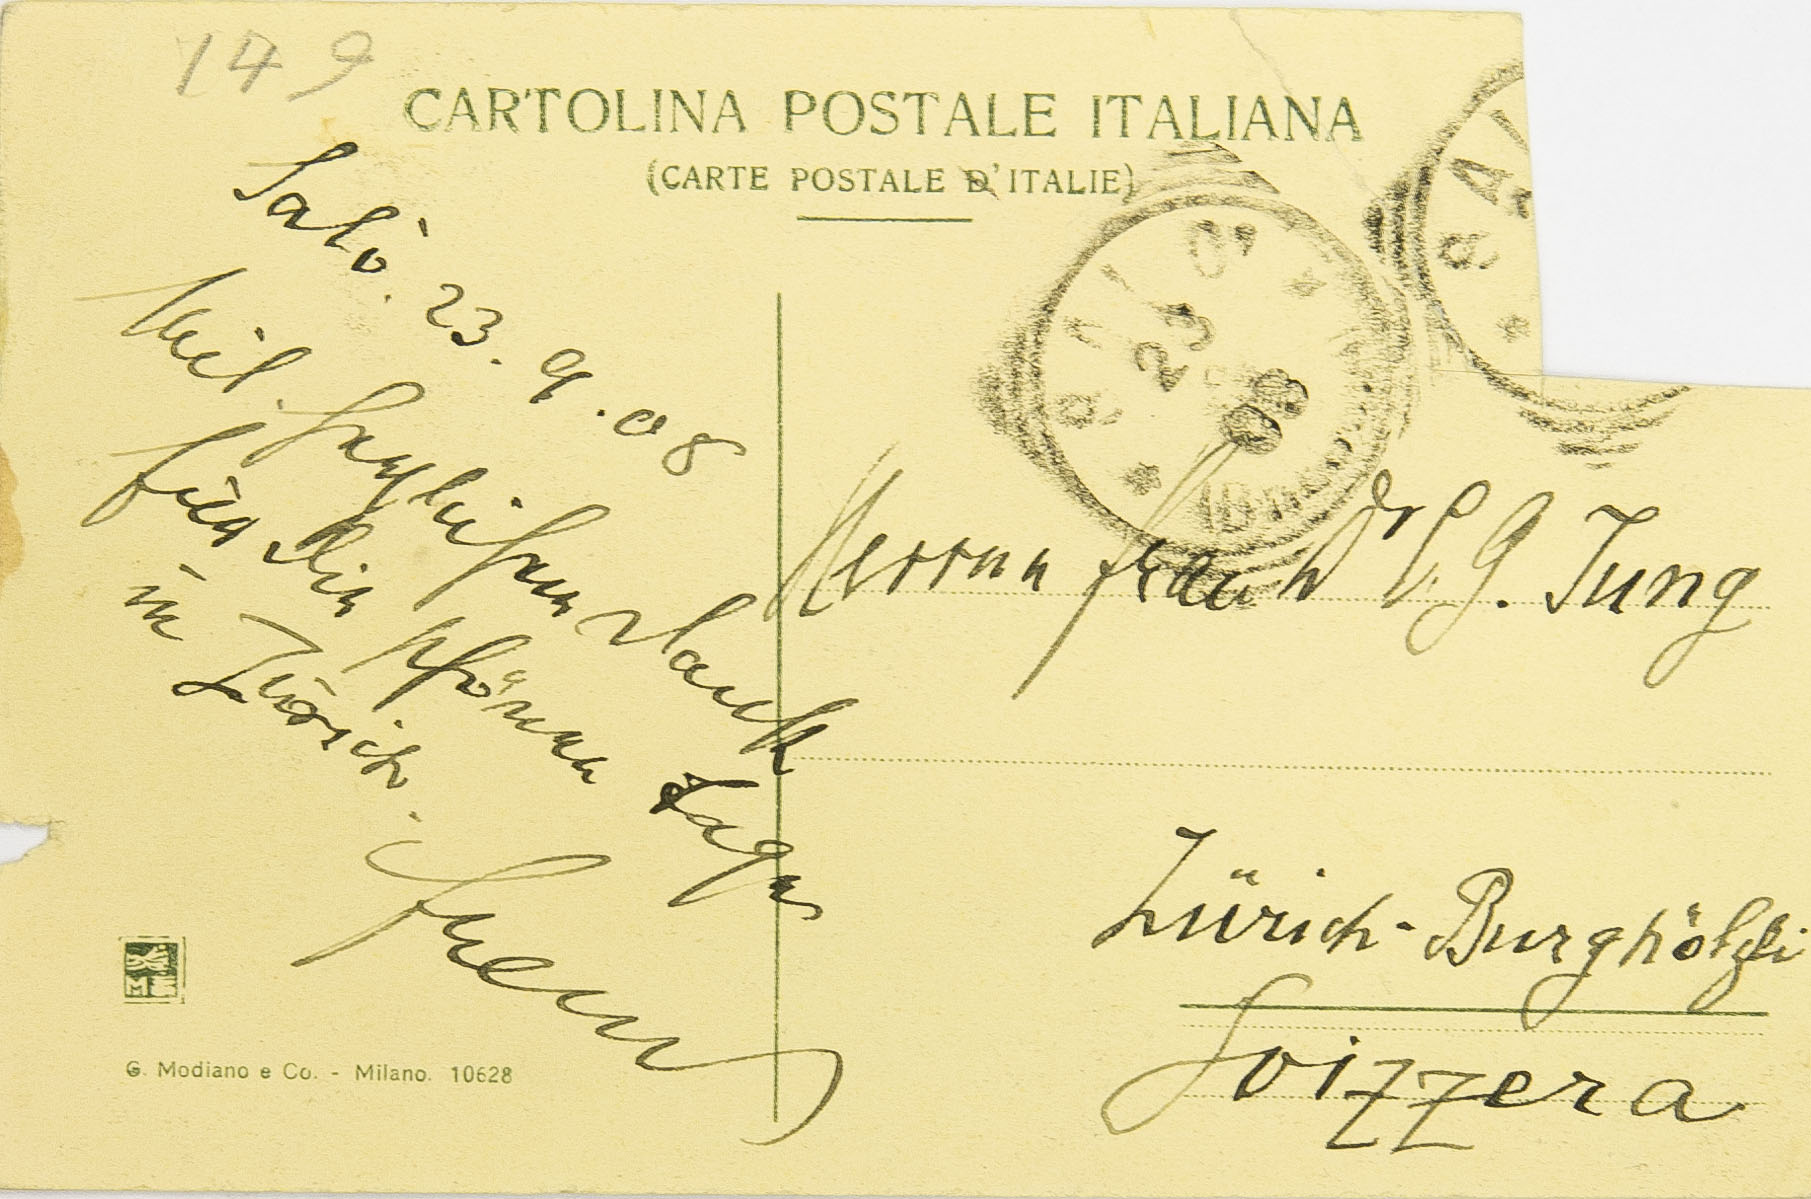 149
CARTOLINA POSTALE ITALIANA
(CARTE POSTALE D'ITALIE)
Salò. 23.9.08
herzlichen Dank
für die schönen Tage
in Zürich.
Freud
SALÒ
23 9 08
(BRESCIA)
SAL
Herrn Frau Dr C. G. Jung
Zürich-Burghölzli
Svizzera
G. Modiano e Co. - Milano. 10628